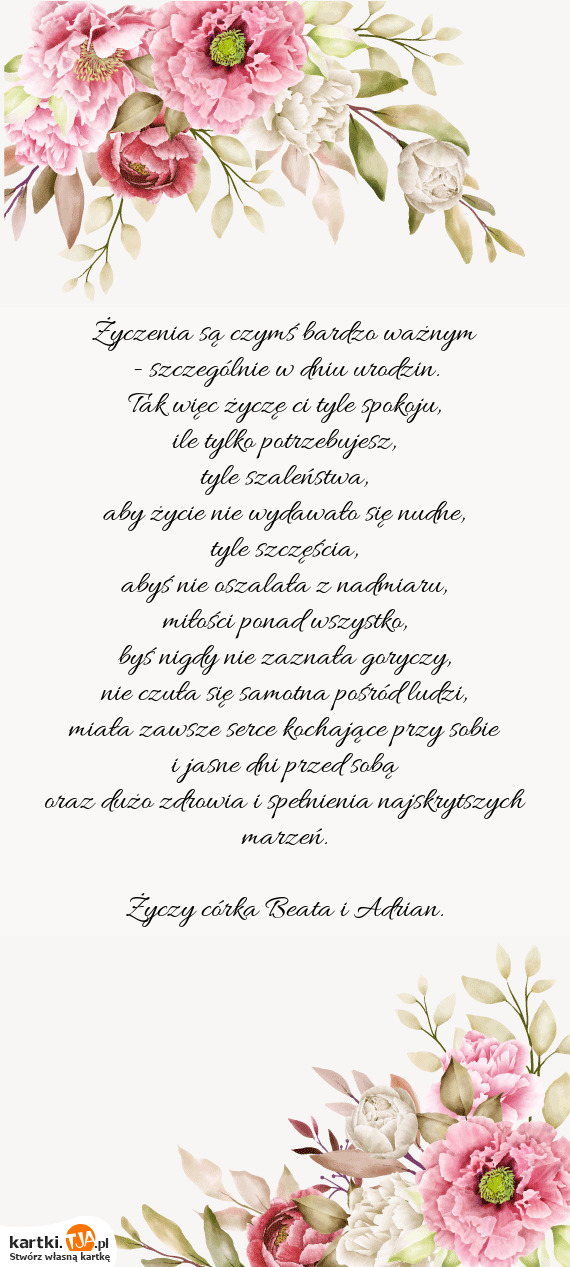 Życzenia są czymś bardzo ważnym
- szczególnie w dniu urodzin.
Tak więc życzę ci tyle spokoju,
ile tylko potrzebujesz,
tyle szaleństwa,
aby życie nie wydawało się nudne,
tyle szczęścia,
abyś nie oszalała z nadmiaru,
miłości ponad wszystko,
byś nigdy nie zaznała goryczy,
nie czuła się samotna pośród ludzi,
miała zawsze serce kochające przy sobie
i jasne dni przed sobą
oraz dużo zdrowia i spełnienia najskrytszych
marzeń.
Życzy córka Beata i Adrian.
kartki.TJA.pl
Stwórz własną kartkę